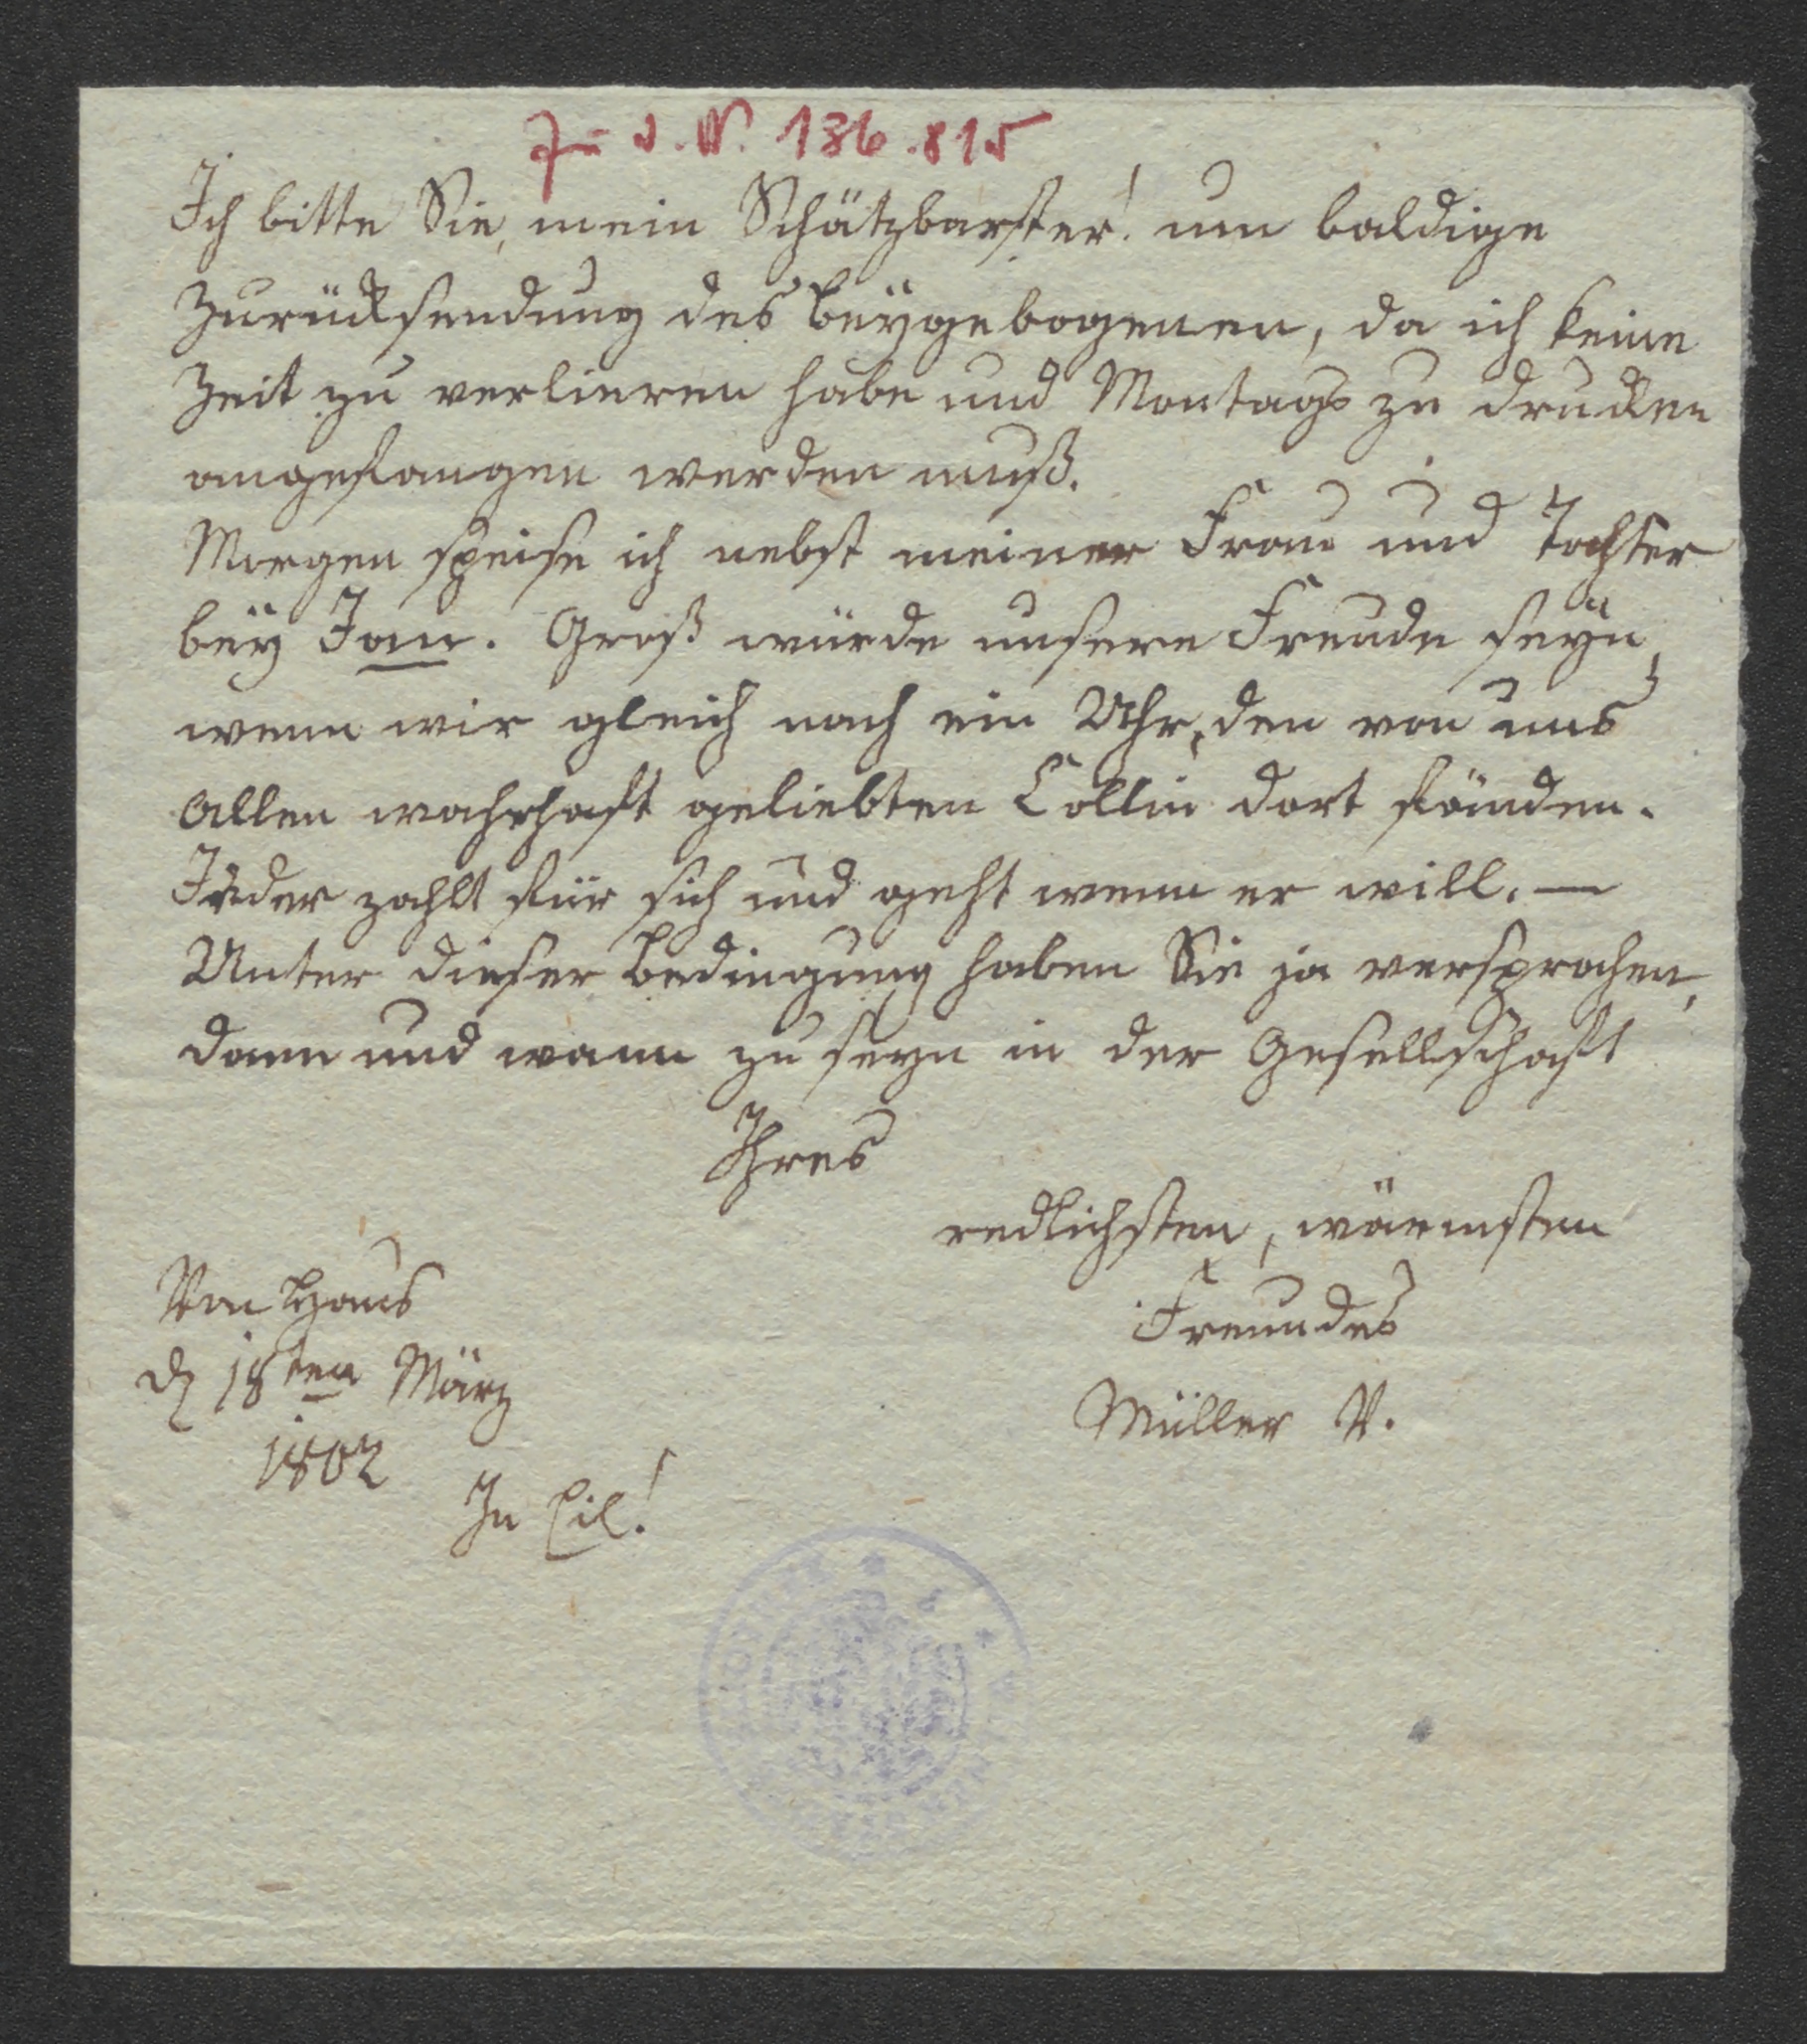 J.N. 136.815
Ich bitte Sie, mein Schätzbarster! um baldige
Zurücksendung des beÿgebogenen, da ich keine
Zeit zu verlieren habe und Montags zu drucken
angefangen werden muß.
Morgen speise ich nebst meiner Frau und Tochter
beÿ Jan. Groß würde unsere Freude seÿn,
wenn wir gleich nach ein Uhr, den von uns
Allen wahrhaft geliebten Collin dort fänden.
Jeder zahlt für sich und geht wenn er will. —
Unter dieser Bedingung haben Sie ja versprochen,
dann und wann zu seyn in der Gesellschaft
Ihres
redlichsten, wärmsten
Freundes
Müller V.
Von Haus
d 18ten März
1802
In Eil!